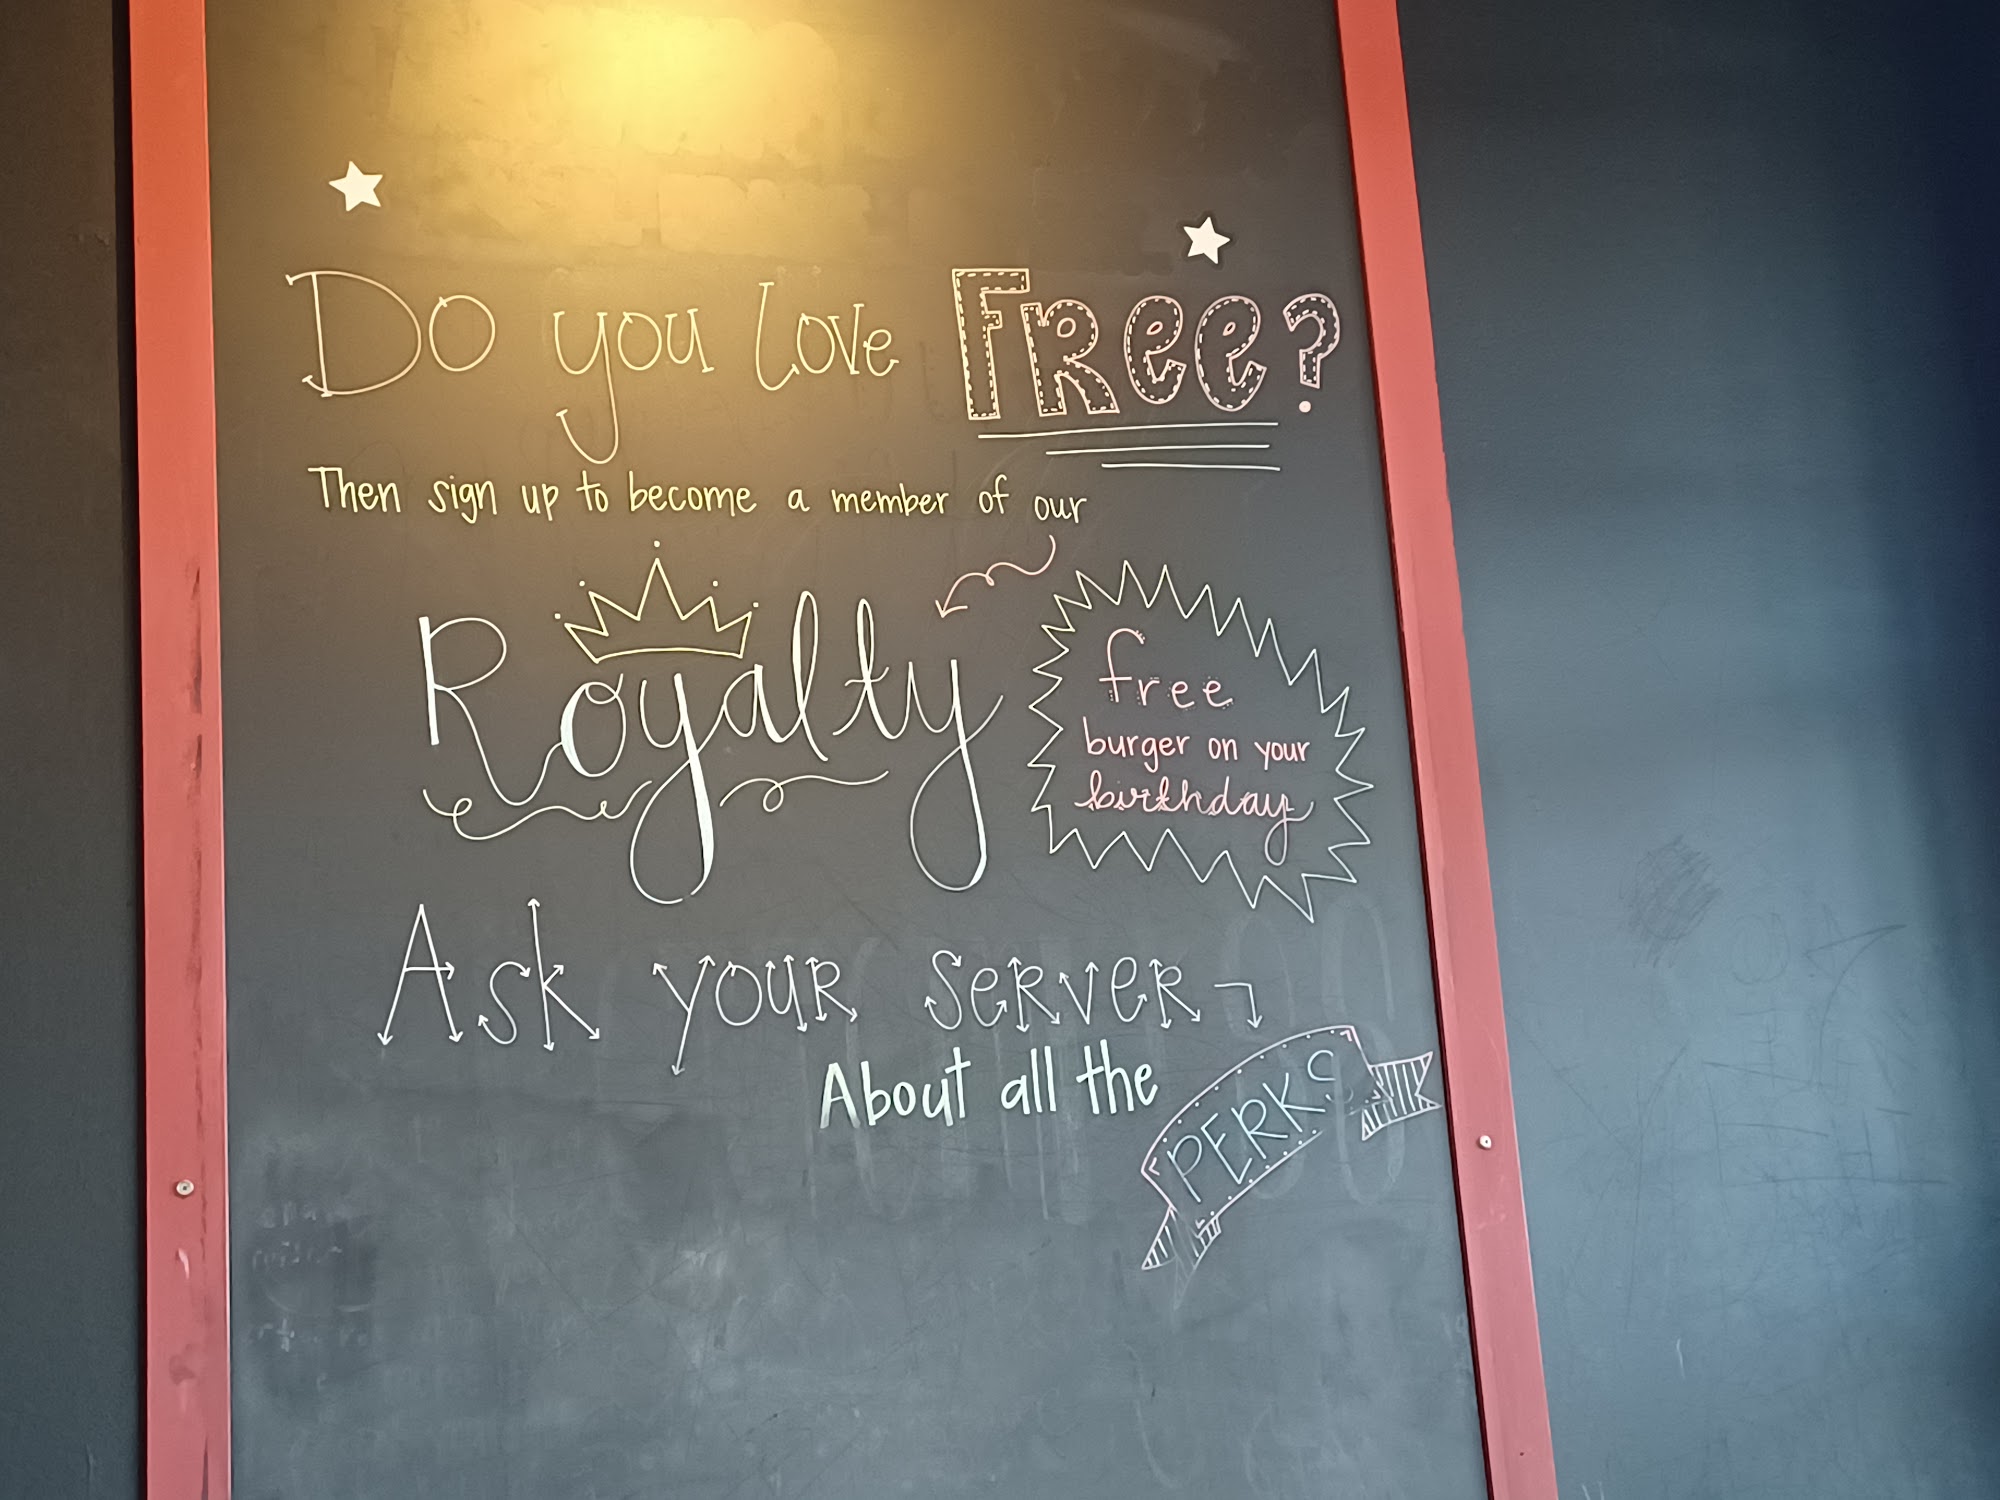 Do you love FRee?
Then sign up to become a member of our
Royalty
free
burger on your
birthday
Ask your server
About all the
PERKS